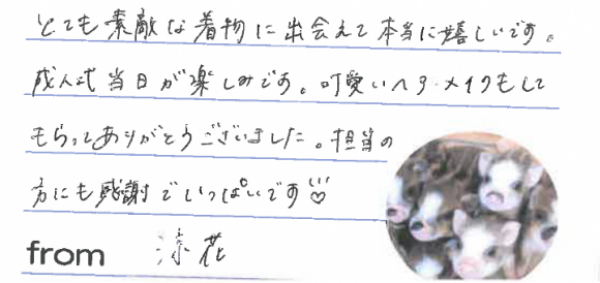 とても素敵な着物に出会えて本当に嬉しいです。
成人式当日が楽しみです。可愛いヘア・メイクもして
もらってありがとうございました。担当の
方にも感謝でいっぱいです♡
from 涼花